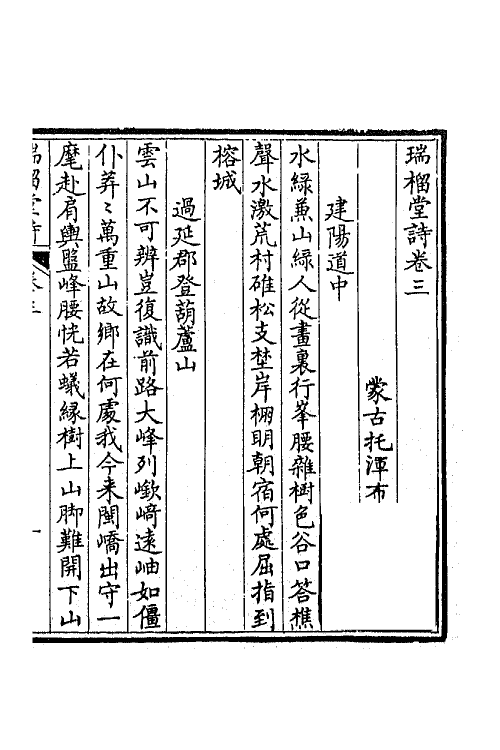 瑞榴堂詩卷三
蒙古托渾布
建陽道中
水綠兼山綠人從畫裏行峯腰雜樹色谷口答樵
聲水激荒村碓松支埜岸棚明朝宿何處屈指到
榕城
過延郡登葫蘆山
雲山不可辨豈復識前路大峰列嶔﨑遠岫如僵
仆莽〻萬重山故鄉在何處我今来閩嶠出守一
麾赴肩輿盤峰腰恍若蟻緣樹上山脚難開下山
瑞榴堂詩 卷三 一